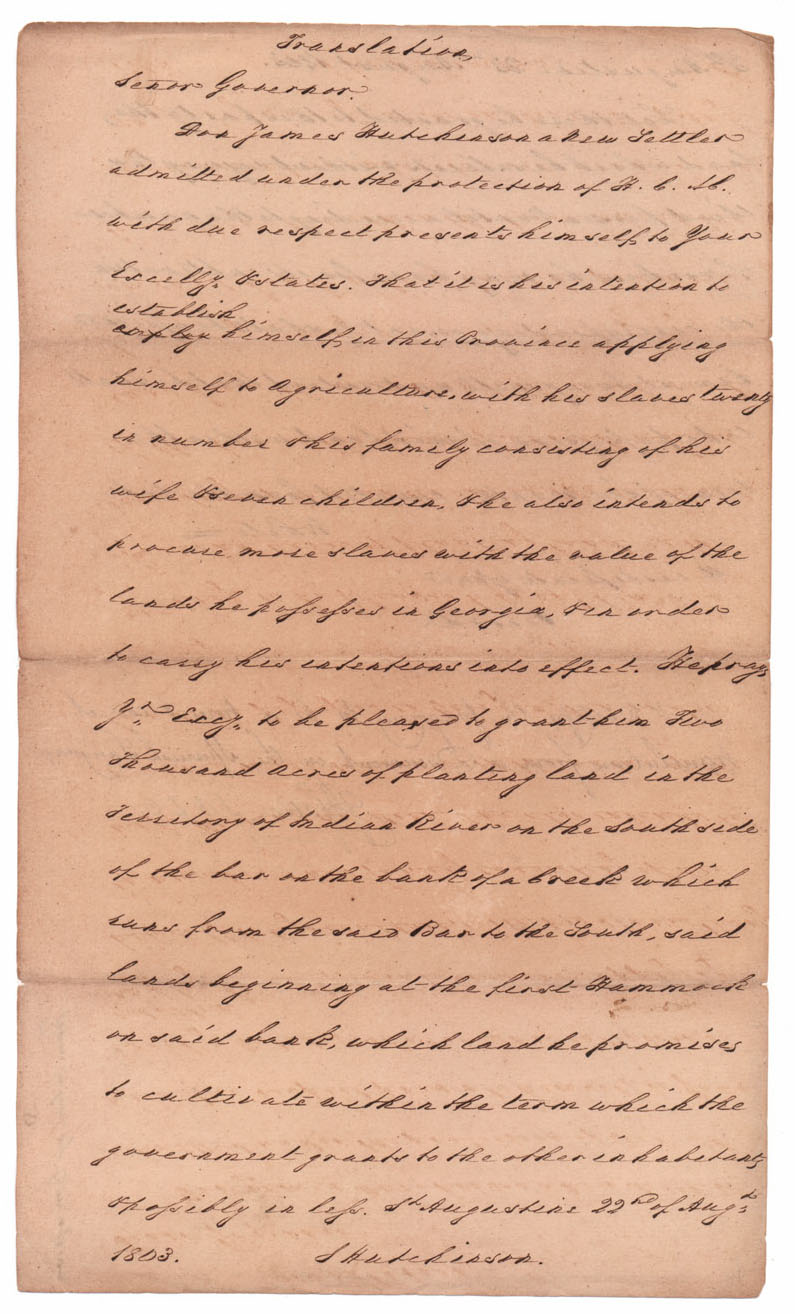 Translation
Senor Governor.
Don James Hutchinson a New Settler
admitted under the protection of H. C. M.
with due respect presents himself to Your
Excelly. & states. That it is his intention to
establish
employ himself in this Province applying
himself to Agriculture, with his slaves twenty
in number & his family consisting of his
wife & seven children, & he also intends to
procure more slaves with the value of the
lands he possesses in Georgia, & in order
to carry his intentions into effect. He prays
Yr. Excy. to be pleased to grant him Two
Thousand Acres of planting land in the
Territory of Indian River on the South side
of the bar on the bank of a Creek which
runs from the said Bar to the South, said
lands beginning at the first Hammock
on said bank, which land he promises
to cultivate within the term which the
government grants to the other inhabitants
& possibly in less. St Augustine 22nd of Augt.
1803. J Hutchinson.